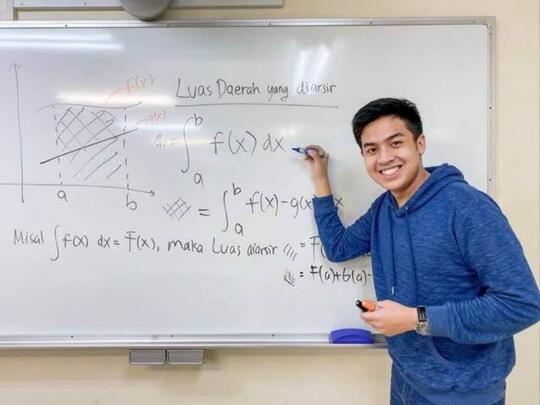 Luas Daerah yang diarsir
f(x)
g(x)
∫ₐᵇ f(x) dx
= ∫ₐᵇ f(x) - g(x) x
a b
Misal ∫ f(x) dx = F(x), maka Luas diarsir = F
= F(a)+G(a)-